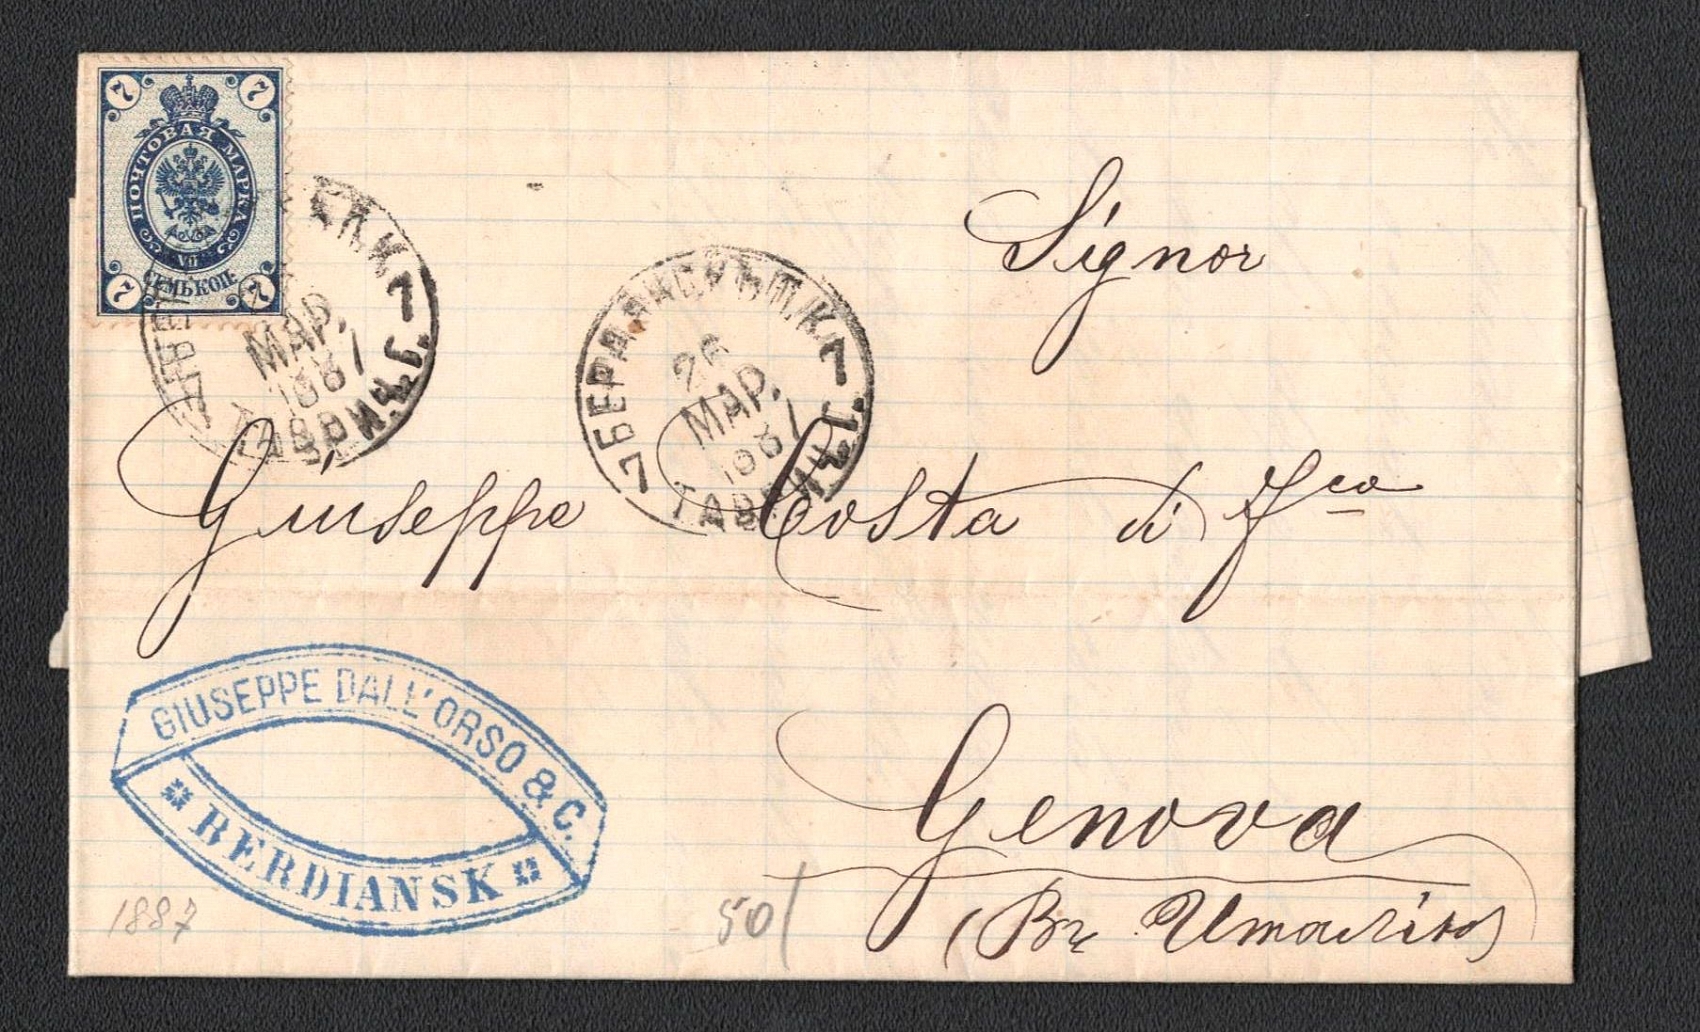 7 7
ПОЧТОВАЯ МАРКА
VII
СЕМЬ КОП.
7 7
7
МАР.
1887
ТАВРИЧ. Г.
7
7 БЕРДЯНСКЪ П.Т.К. 7
26
МАР.
1887
Signor
Giuseppe Costa di Fco
GIUSEPPE DALL'ORSO & C.
BERDIANSK
Genova
(Въ Италію)
1887
50/